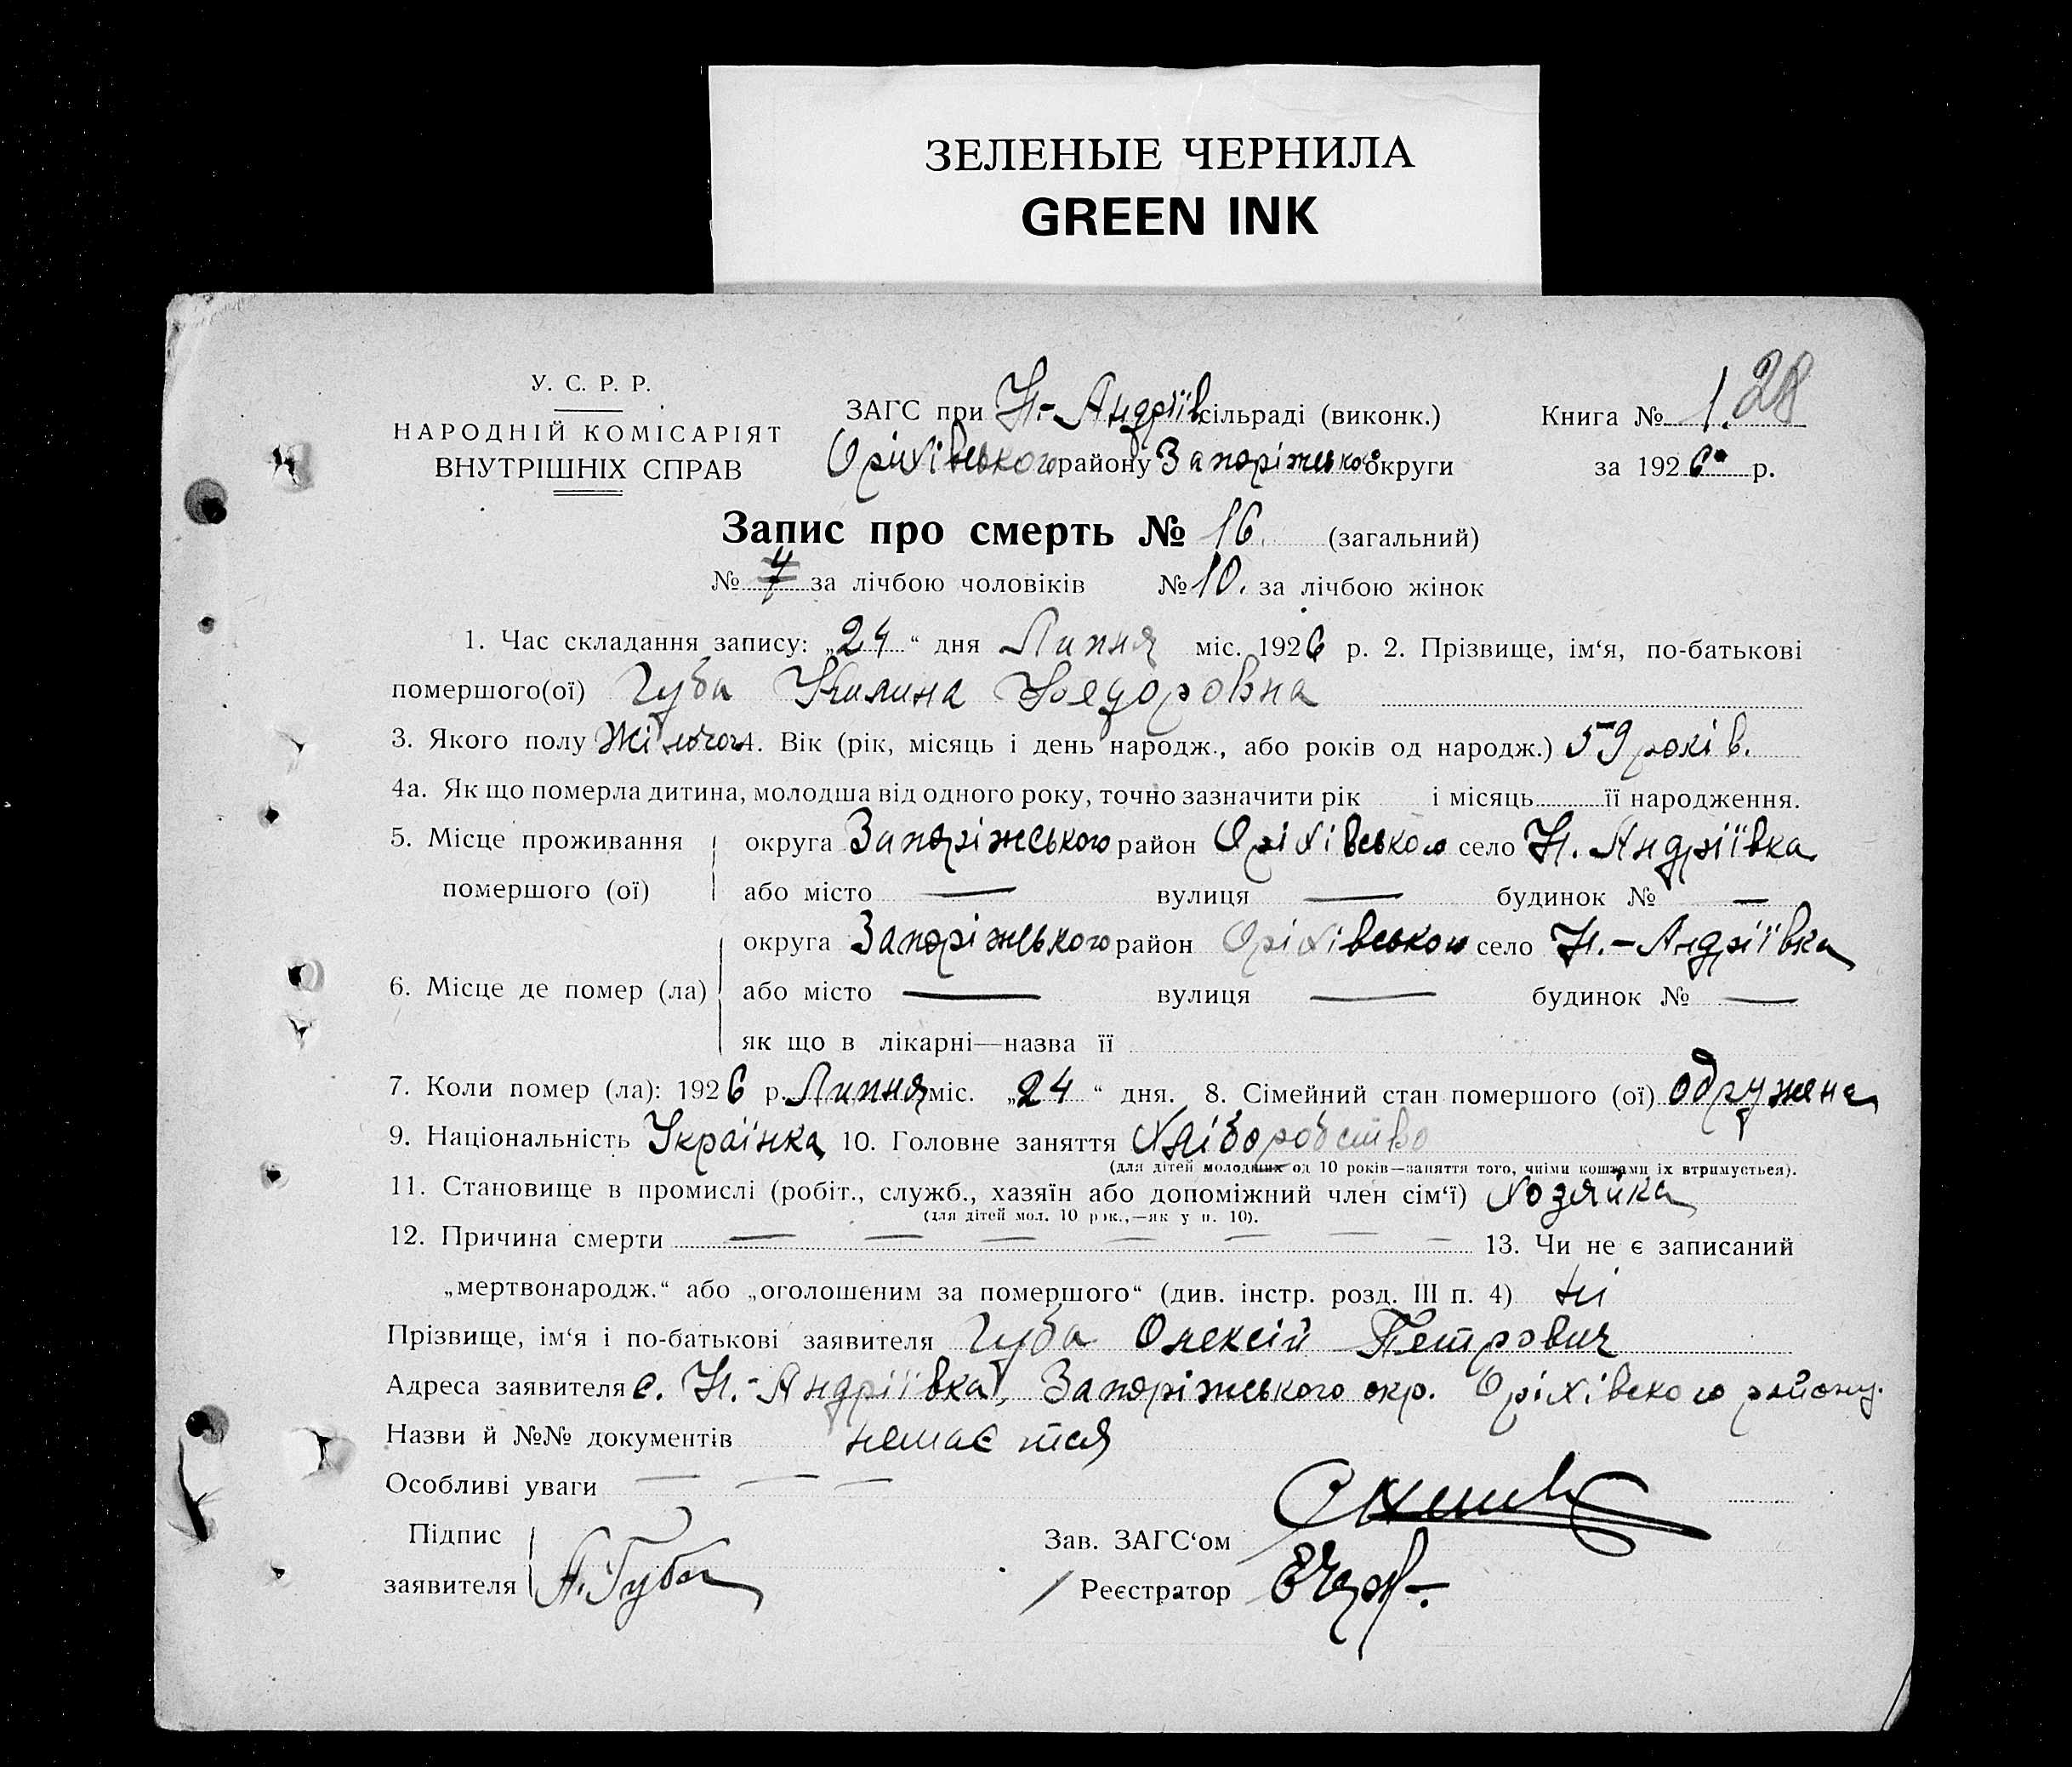 ЗЕЛЕНЫЕ ЧЕРНИЛА
GREEN INK
У. С. Р. Р.
НАРОДНІЙ КОМІСАРІЯТ
ВНУТРІШНІХ СПРАВ
ЗАГС при Н.-Андріїв сільраді (виконк.)
Оріхівського району Запоріжської округи
Книга № 1. 28
за 1926 р.
Запис про смерть № 16. (загальний)
№ 7 за лічбою чоловіків № 10. за лічбою жінок
1. Час складання запису: „24“ дня Липня міс. 1926 р. 2. Прізвище, ім‘я, по-батькові
помершого(ої) Губа Килина Федоровна
3. Якого полу Жіночого 4. Вік (рік, місяць і день народж., або років од народж.) 59 років.
4а. Як що померла дитина, молодша від одного року, точно зазначити рік і місяць її народження.
5. Місце проживання помершого (ої) округа Запоріжського район Оріхівського село Н. Андріївка
або місто — вулиця — будинок № —
6. Місце де помер (ла) округа Запоріжського район Оріхівського село Н.-Андріївка
або місто — вулиця — будинок № —
як що в лікарні—назва її
7. Коли помер (ла): 1926 р. Липня міс. „24“ дня. 8. Сімейний стан помершого (ої) одружена
9. Національність Українка 10. Головне заняття Хліборобство
(для дітей молодших од 10 років—заняття того, чиїми коштами їх втримується).
11. Становище в промислі (робіт., служб., хазяїн або допоміжний член сім‘ї) Хозяйка
(для дітей мол. 10 рок.,—як у п. 10).
12. Причина смерти — — — — — — — 13. Чи не є записаний
„мертвонародж.“ або „оголошеним за помершого“ (див. інстр. розд. III п. 4) ні
Прізвище, ім‘я і по-батькові заявителя Губа Олексій Петрович
Адреса заявителя с. Н.-Андріївка, Запоріжського окр. Оріхівского району.
Назви й №№ документів немається
Особливі уваги — — —
Підпис заявителя А. Губа
Зав. ЗАГС‘ом
Реєстратор